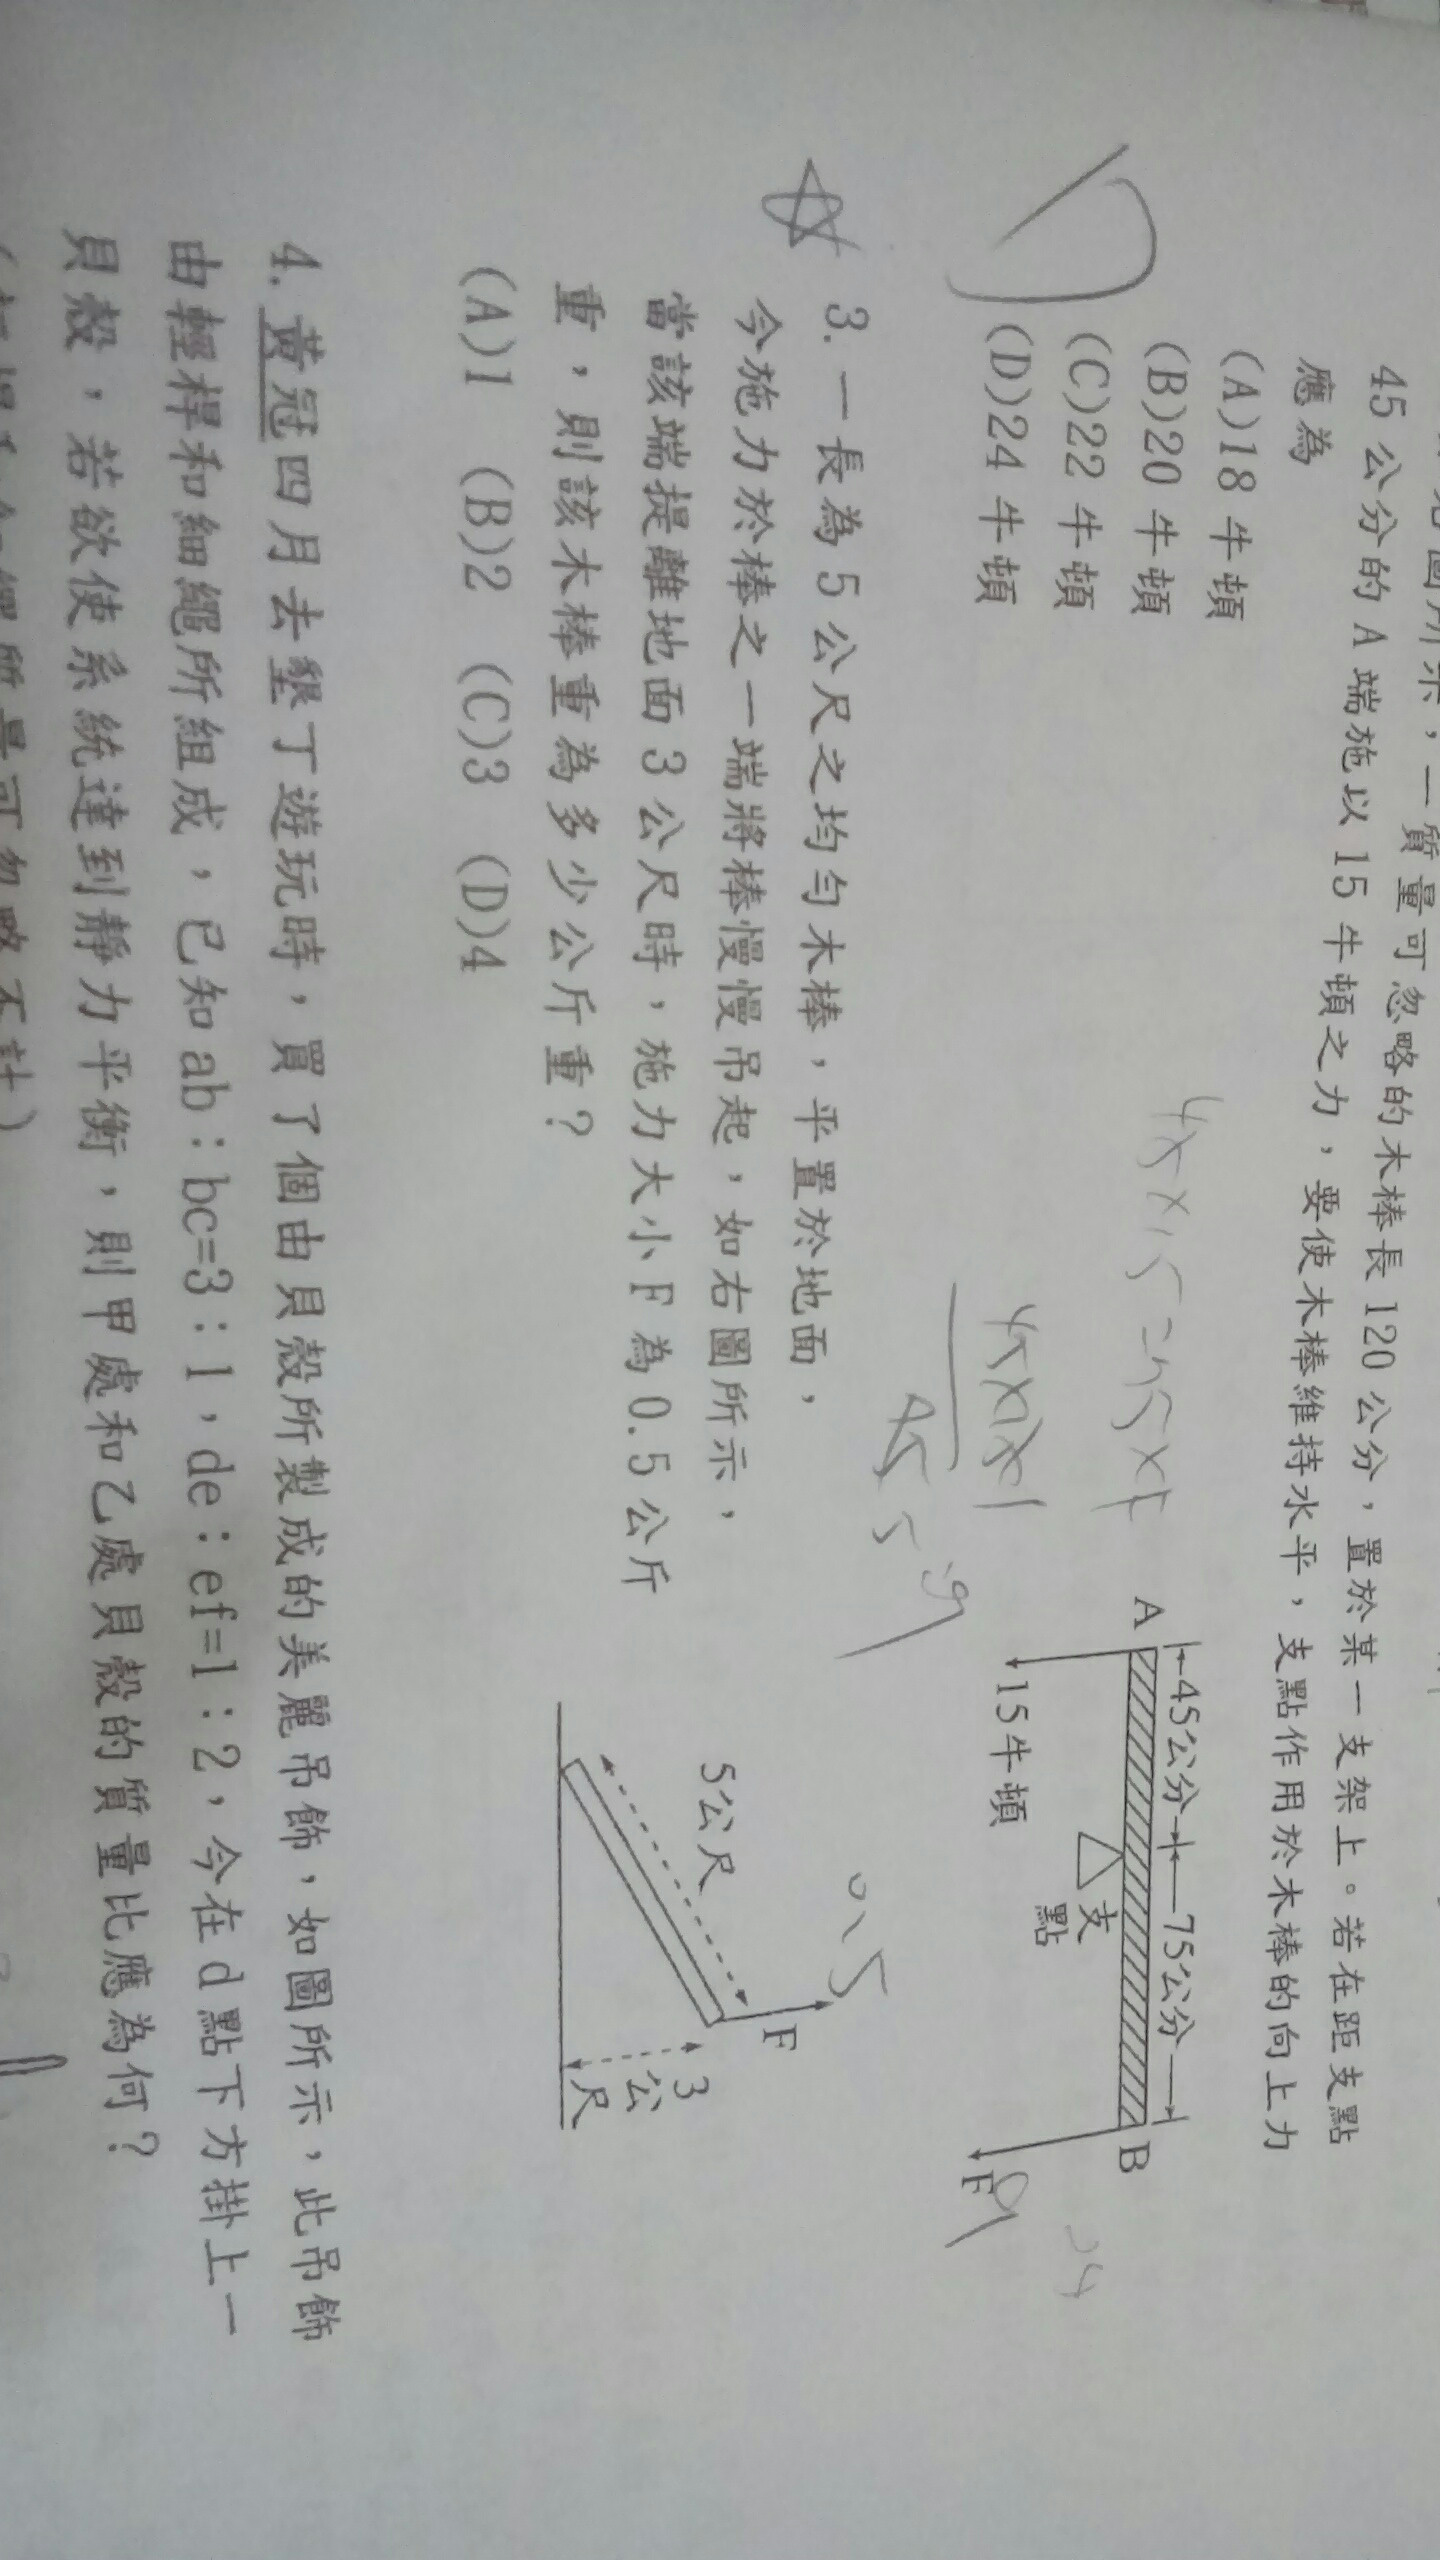 見圖所示，一質量可忽略的木棒長 120 公分，置於某一支架上。若在距支點
45 公分的 A 端施以 15 牛頓之力，要使木棒維持水平，支點作用於木棒的向上力
應為
(A)18 牛頓
(B)20 牛頓
(C)22 牛頓
(D)24 牛頓
45公分
75公分
A
B
支點
15牛頓
F
9
24
45×15=75×F
0.5
3. 一長為 5 公尺之均勻木棒，平置於地面，
今施力於棒之一端將棒慢慢吊起，如右圖所示，
當該端提離地面 3 公尺時，施力大小 F 為 0.5 公斤
重，則該木棒重為多少公斤重？
(A)1 (B)2 (C)3 (D)4
5公尺
F
3公尺
4. 黃冠四月去墾丁遊玩時，買了個由貝殼所製成的美麗吊飾，如圖所示，此吊飾
由輕桿和細繩所組成，已知 ab：bc=3：1，de：ef=1：2，今在 d 點下方掛上一
貝殼，若欲使系統達到靜力平衡，則甲處和乙處貝殼的質量比應為何？
質量可忽略不計）